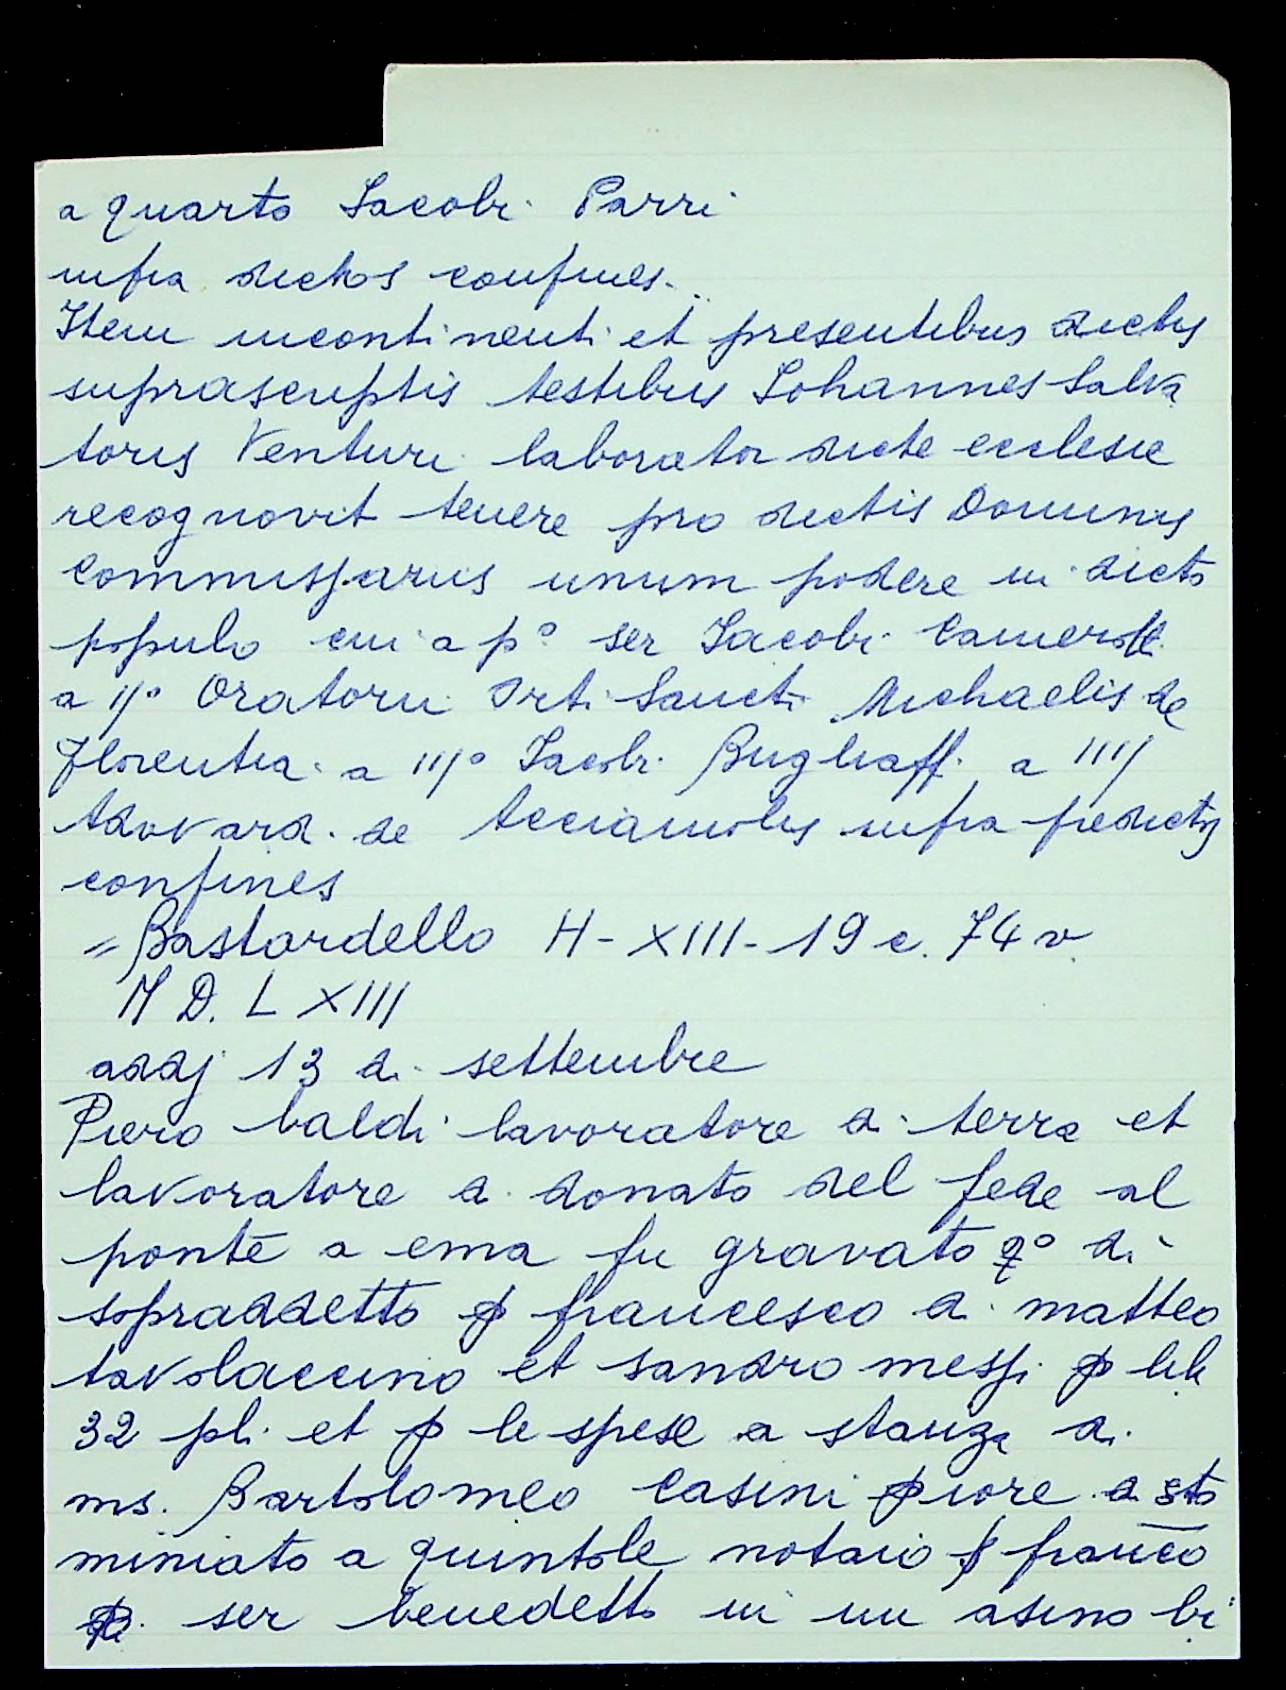 a quarto Iacobi Parri
infra dictos confines.
Item incontinenti et presentibus dictis
suprascriptis testibus Iohannes Salva
toris Venturi laborator dicte ecclesie
recognovit tenere pro dictis Dominis
Commissariis unum podere in dicto
populo cui a pº ser Iacobi
a IJº Oratorii Orti Sancti Michaelis de
Florentia a IIJº Iacobi Bugliaff. a IIIJ
de Acciaiuolis infra predictos
confines
= Bastardello H - XIII - 19 c. 74 v.
M D. L XIII
addj 13 di settembre
Piero baldi lavoratore di terra et
lavoratore di donato del fede al
ponte a ema fu gravato qº di
sopraddetto p francesco di matteo
tavolaccino et sandro messi p lib
32 pli. et p le spese a stanza di
ms. Bartolomeo Casini piore di sto
miniato a quintole notaio p franco
ser benedetto in un asino bi